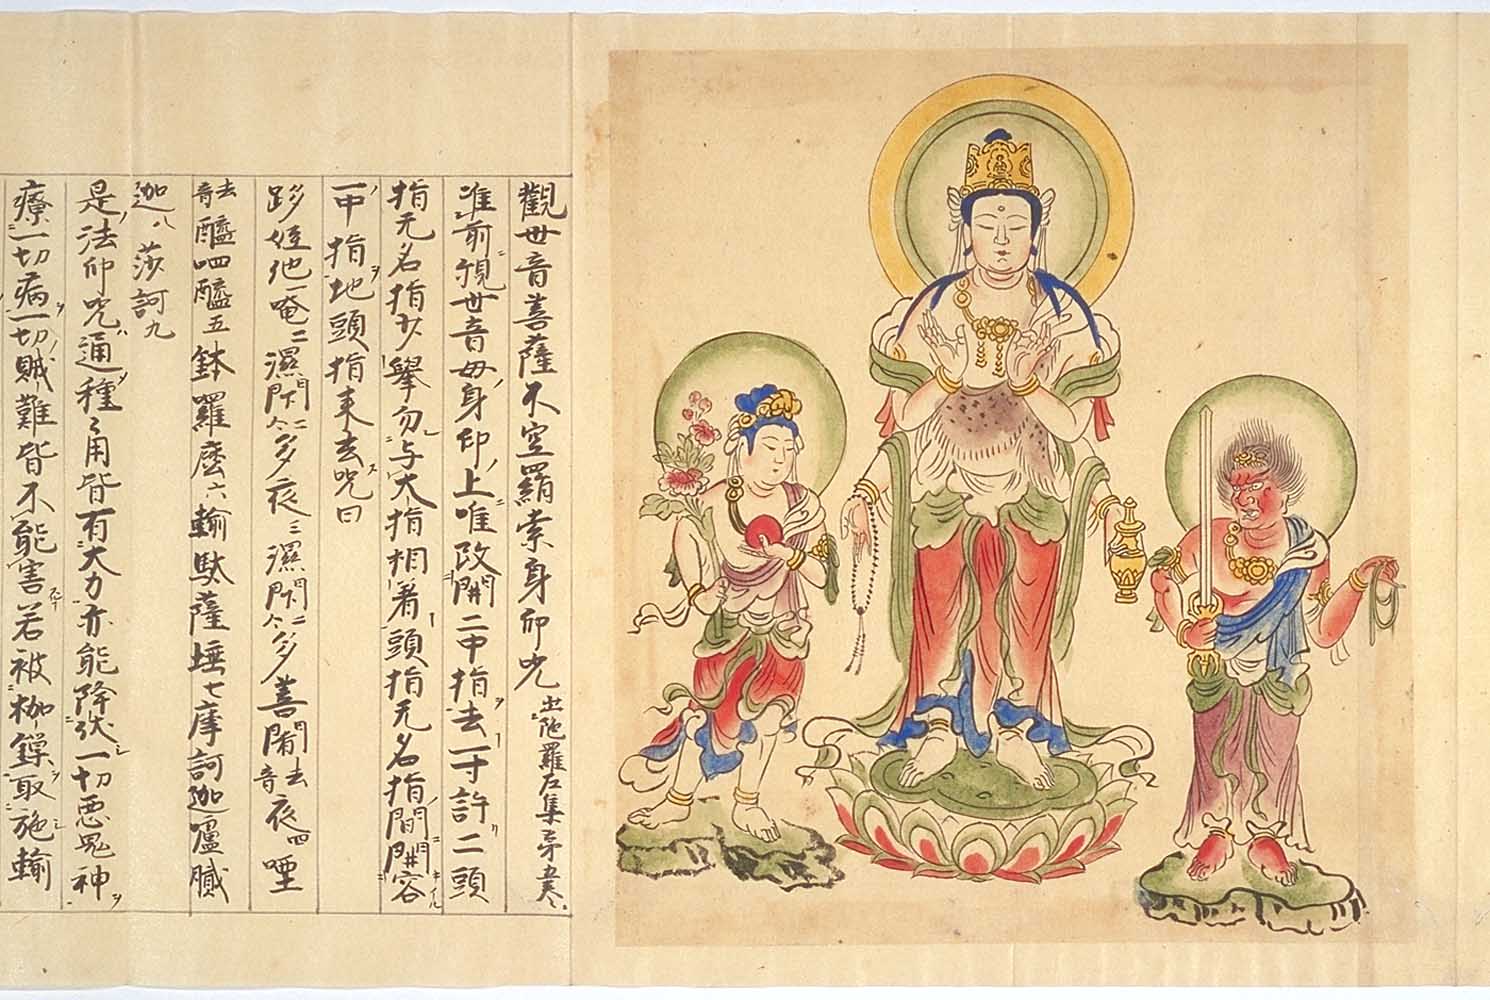 觀世音菩薩不空羂索身印咒 出陀羅尼集第五卷
准前觀世音母身印上唯改開二中指去一寸許二頭
指无名指少舉勿与大指相着頭指无名指間開容
一中指地頭指来去咒曰
跢侄他一唵二濕閇二合多夜三濕閇二合多善閙去音夜四唖
去音醯呬醯五鉢羅麽六輸馱薩埵七摩訶迦嚧膩
迦八莎訶九
是法印咒通種々用皆有大力亦能降伏一切惡鬼神
療一切病一切賊難皆不能害若被枷鏁取施輸